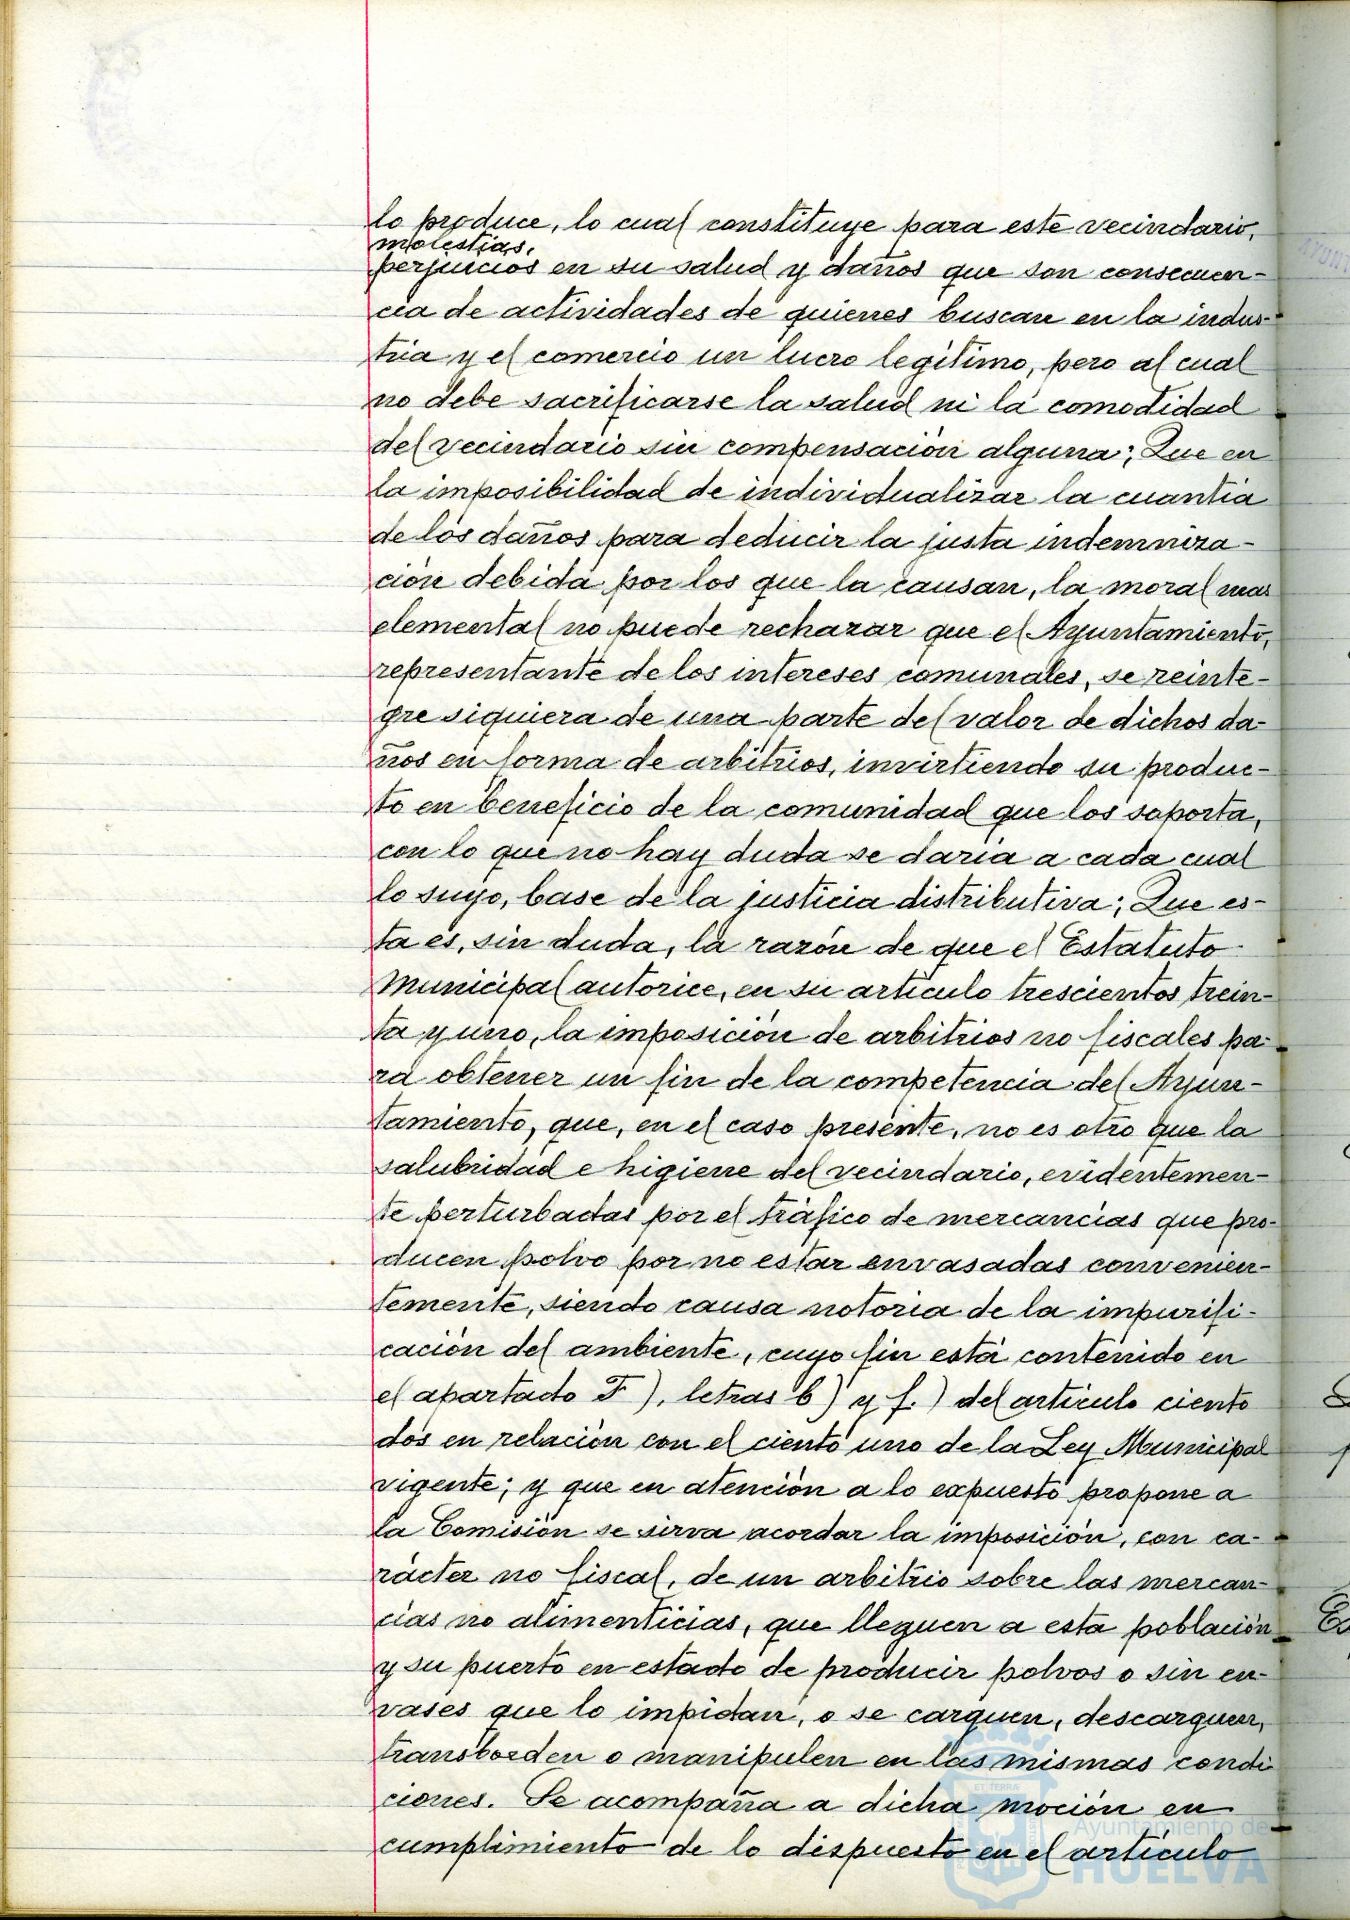 lo produce, lo cual constituye para este vecindario,
molestias,
perjuicios en su salud y daños que son consecuen-
cia de actividades de quienes buscan en la indus-
tria y el comercio un lucro legítimo, pero al cual
no debe sacrificarse la salud ni la comodidad
del vecindario sin compensación alguna; Que en
la imposibilidad de individualizar la cuantía
de los daños para deducir la justa indemniza-
ción debida por los que la causan, la moral mas
elemental no puede rechazar que el Ayuntamiento,
representante de los intereses comunales, se reinte-
gre siquiera de una parte del valor de dichos da-
ños en forma de arbitrios, invirtiendo su produc-
to en beneficio de la comunidad que los soporta,
con lo que no hay duda se daria a cada cual
lo suyo, base de la justicia distributiva; Que es-
ta es, sin duda, la razón de que el Estatuto
Municipal autorice, en su artículo trescientos trein-
ta y uno, la imposición de arbitrios no fiscales pa-
ra obtener un fin de la competencia del Ayun-
tamiento, que, en el caso presente, no es otro que la
salubridad e higiene del vecindario, evidentemen-
te perturbadas por el tráfico de mercancías que pro-
ducen polvo por no estar envasadas convenien-
temente, siendo causa notoria de la impurifi-
cación del ambiente, cuyo fin está contenido en
el apartado F), letras b) y f.) del artículo ciento
dos en relación con el ciento uno de la Ley Municipal
vigente; y que en atención a lo expuesto propone a
la Comisión se sirva acordar la imposición, con ca-
rácter no fiscal, de un arbitrio sobre las mercan-
cías no alimenticias, que lleguen a esta población
y su puerto en estado de producir polvos o sin en-
vases que lo impidan, o se carguen, descarguen,
transborden o manipulen en las mismas condi
ciones. Se acompaña a dicha moción en
cumplimiento de lo dispuesto en el artículo
Ayuntamiento de
HUELVA